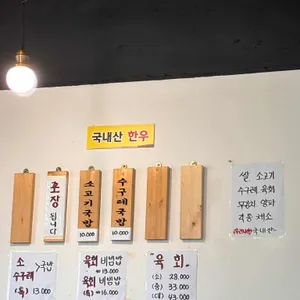 국내산 한우
포장
됩니다
소고기국밥
10,000
수구레국밥
10,000
소
수구레 >국밥
육회비빔밥
₩13,000
육회비빔밥
(특) ₩16,000
육회
(소) 28,000
(중) 33,000
(대) 43,000
쌀 소고기
수구레 육회
무김치 양파
각종 채소
국내산